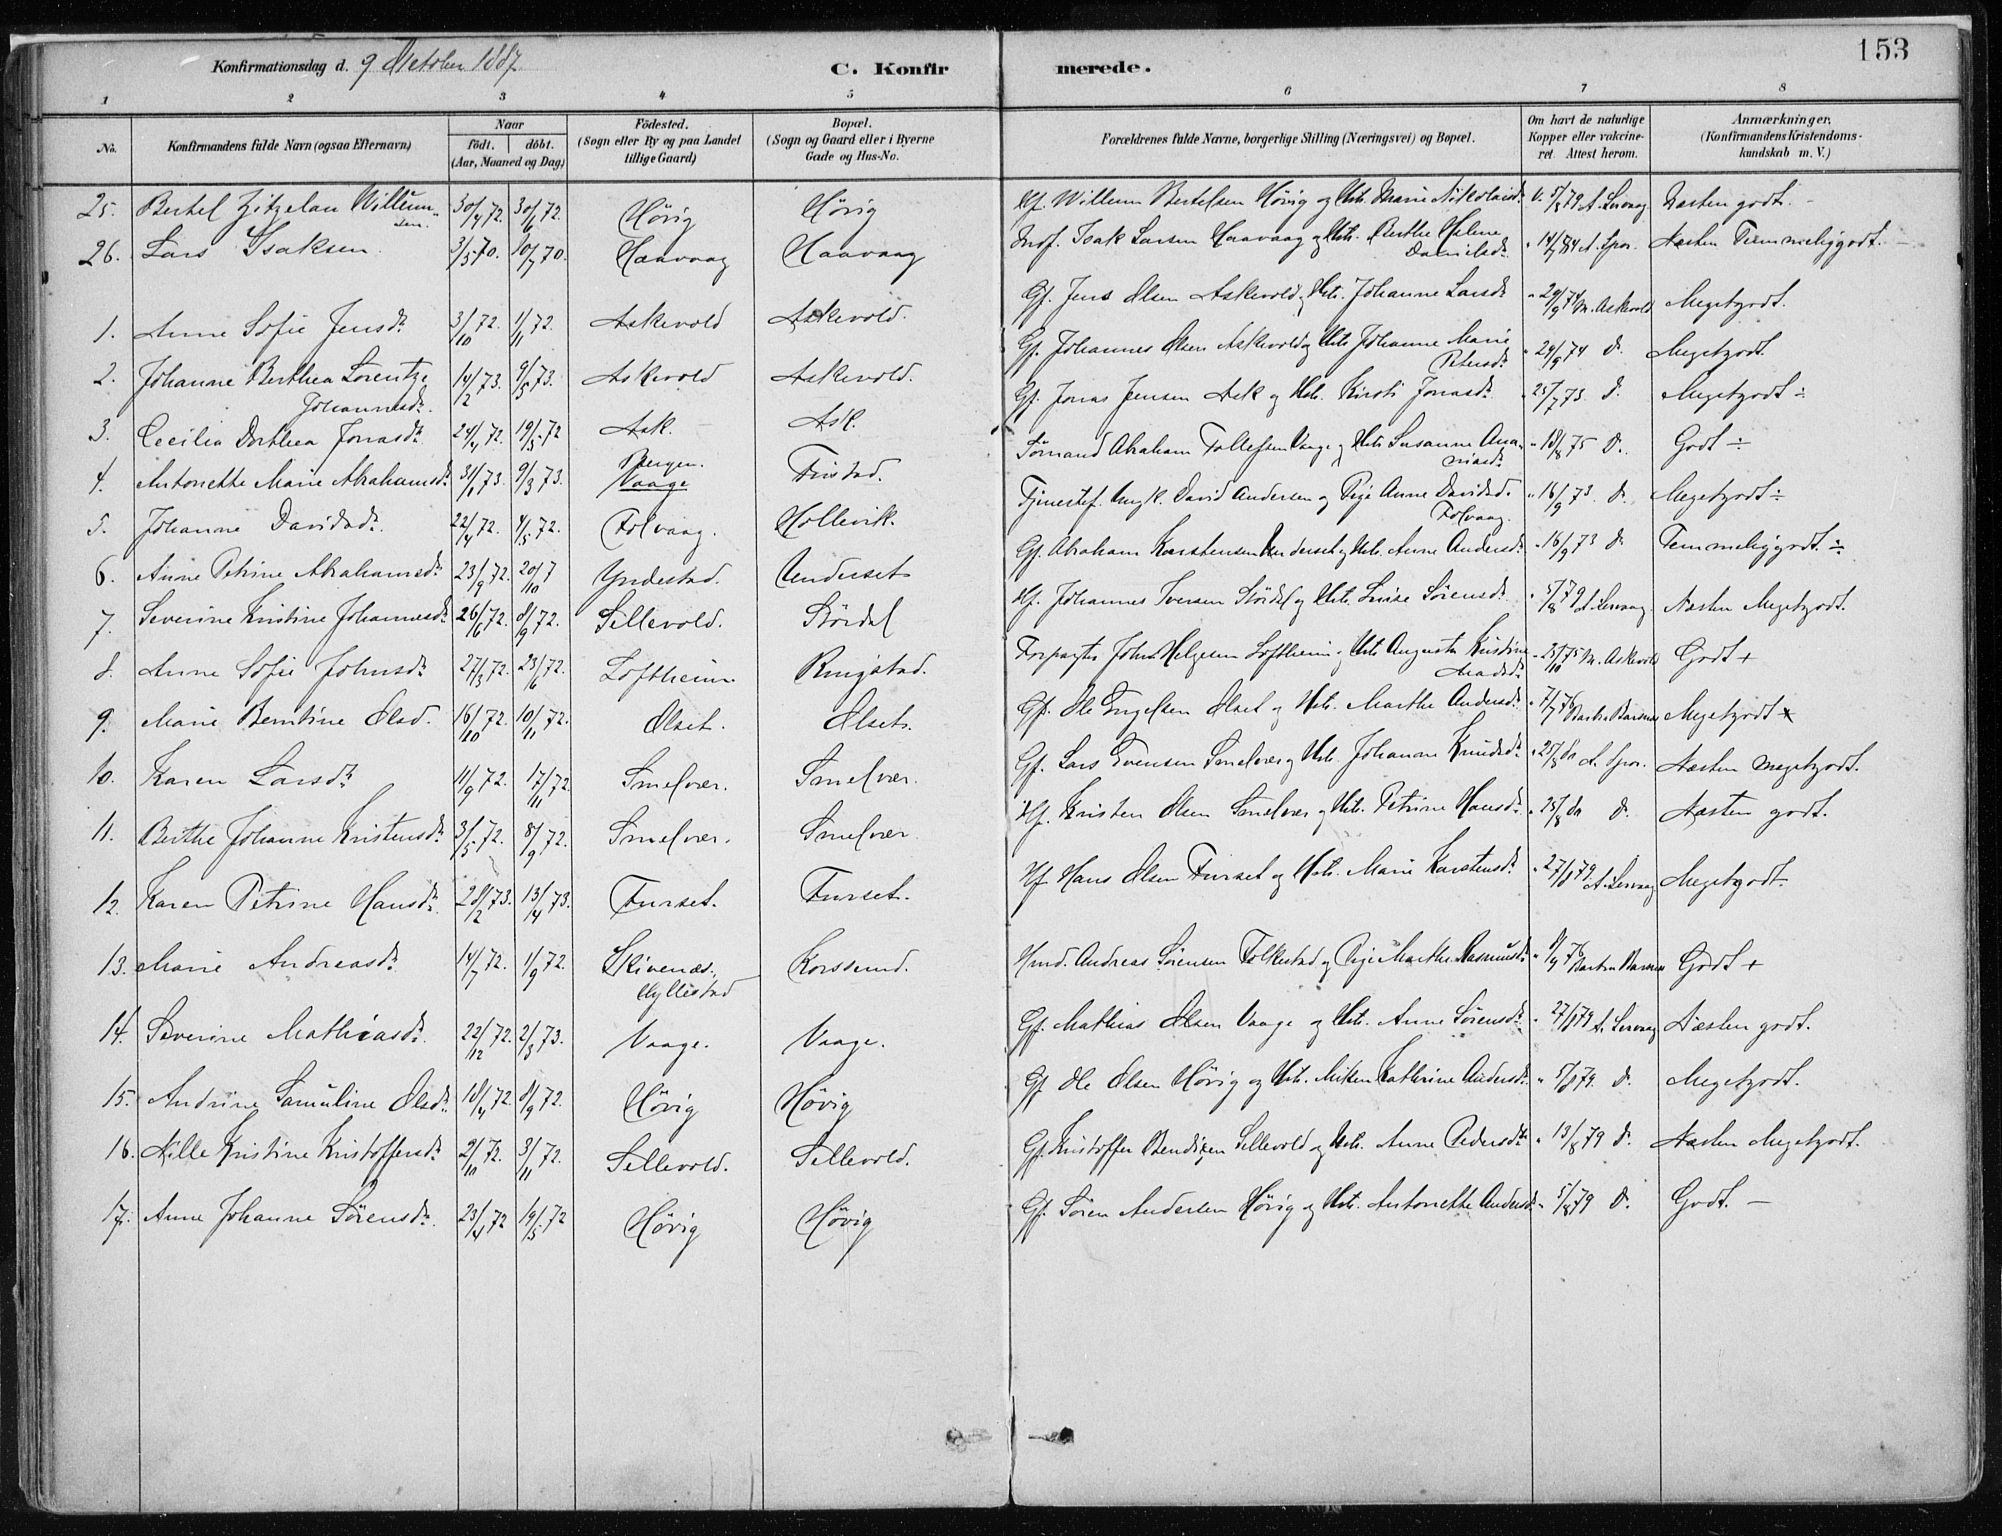 153
Konfirmationsdag d. 9 October 1887.
C. Konfirmerede.
1 2 3 4 5 6 7 8
No.
Konfirmandens fulde Navn (ogsaa Efternavn)
Naar
födt. döbt.
(Aar, Maaned og Dag)
Födested.
(Sogn eller By og paa Landet
tillige Gaard)
Bopæl.
(Sogn og Gaard eller i Byerne
Gade og Hus-No.
Forældrenes fulde Navne, borgerlige Stilling (Næringsvei) og Bopæl.
Om havt de naturlige
Kopper eller vakcine-
ret. Attest herom.
Anmærkninger,
(Konfirmandens Kristendoms-
kundskab m. V.)
25. Bertel Zitzelan Willum- 30/4 72. 30/6 72. Hövig Hövig Hf. Willum Bertelsen Hövig og Hst. Marie Nikolaisdr. V. 5/8 79 A. Lervaag Næsten godt. -
sen.
26. Lars Isaksen 3/5 70. 10/7 70. Haavaag Haavaag Isak Larsen Haavaag og Hst. Berthe Helene 14/7 84 A. Spor. Næsten Temmeliggodt. -
Danielsdr.
1. Anne Sofie Jensdr. 3/10 72. 1/11 72. Askevold Askevold. Gf. Jens Olsen Askevold og Hst. Johanne Larsdr. " 24/9 74 M. Askevold Megetgodt.
2. Johanne Berthea Lorentze 14/2 73. 9/5 73. Askevold Askevold. Gf. Johannes Olsen Askevold og Hst. Johanne Marie " 24/9 74 do. Megetgodt.
Johannesdr. Petersdr.
3. Cecilia Dorthea Jonasdr. 24/4 72. 19/5 72 Ask. Ask. Gf. Jonas Jensen Ask og Hst. Kirsti Jonasdr. " 25/7 73 do. Megetgodt ÷
4. Antonette Marie Abrahamsdr. 31/1 73. 9/3 73. Bergen. Vaage Tristad. Sömand Abraham Tollefsen Vaage og Hst. Susanne Ana- " 18/8 75 do. Godt ÷
niasdr.
5. Johanne Davidsdr. 22/4 72. 4/5 72. Folvaag. Hollevik. Tjenestef. Ungk. David Andersen og Pige Anne Davidsd. " 16/9 73 do. Megetgodt ÷
Folvaag.
6. Anne Petrine Abrahamsdr. 23/9 72. 20/10 7 Yndestad. Underset Gf. Abraham Karstensen Underset og Hst. Anne Andersdr. " 16/9 73 do. Temmeliggodt. ÷
7. Severine Kristine Johannesdr. 26/6 72. 8/9 72. Sellevold. Stördal Hf. Johannes Iversen Stördal og Hst. Louise Sörensdr. " 5/8 79 A. Lervaag Næsten Megetgodt.
8. Anne Sofie Johnsdr. 27/3 72. 23/6 72. Loftheim. Ringstad. Forpagter John Helgesen Loftheim og Hst. Augusta Kristine " 23/10 75 M. Askevold Godt +
Madsdr.
9. Marie Berntine Olsd. 16/10 72. 10/11 72. Olset. Olset. Gf. Ole Engelsen Olset og Hst. Marthe Andersdr. " 7/7 76 Megetgodt +
10. Karen Larsdr. 11/9 72. 17/11 72. Smelvær. Smelvær. Gf. Lars Svensen Smelvær og Hst. Johanne Knudsdr. " 25/8 80 A. Spor. Næsten megetgodt.
11. Berthe Johanne Kristensdr. 3/5 72. 8/9 72. Smelvær. Smelvær Hf. Kristen Olsen Smelvær og Hst. Petrine Hansdr. " 25/8 80 do. Næsten godt.
12. Karen Petrine Hansdr. 28/2 73. 13/4 73. Furset. Furset. Hf. Hans Olsen Furset og Hst. Marie Karstensdr. " 27/8 79 A. Lervaag Megetgodt.
13. Marie Andreasdr. 14/7 72. 1/9 72. Skivenæs. Korssund. Andreas Sörensen Folkestad og Pige Marthe Rasmusdr. Godt +
Hyllestad
14. Severine Mathiasdr. 22/12 72. 2/3 73. Vaage. Vaage. Gf. Mathias Olsen Vaage og Hst. Anne Sörensdr. " 27/8 79 A. Lervaag Næsten godt.
15. Andrine Samuline Olsdr. 18/4 72. 8/9 72. Hövig Hövig Gf. Ole Olsen Hövig og Hst. Kathrine Andersdr. " 5/8 79. do. Megetgodt.
16. Nille Kristine Kristoffersdr. 2/10 72. 3/11 72. Sellevold. Sellevold. Gf. Kristoffer Bendixen Sellevold og Hst. Anne Pedersdr. " 13/8 79 do. Næsten Megetgodt.
17. Anne Johanne Sörensdr. 23/4 72 19/5 72 Hövig Hövig Gf. Sören Andersen Hövig og Hst. Antonette Andersd. " 5/8 79 do. Godt. -